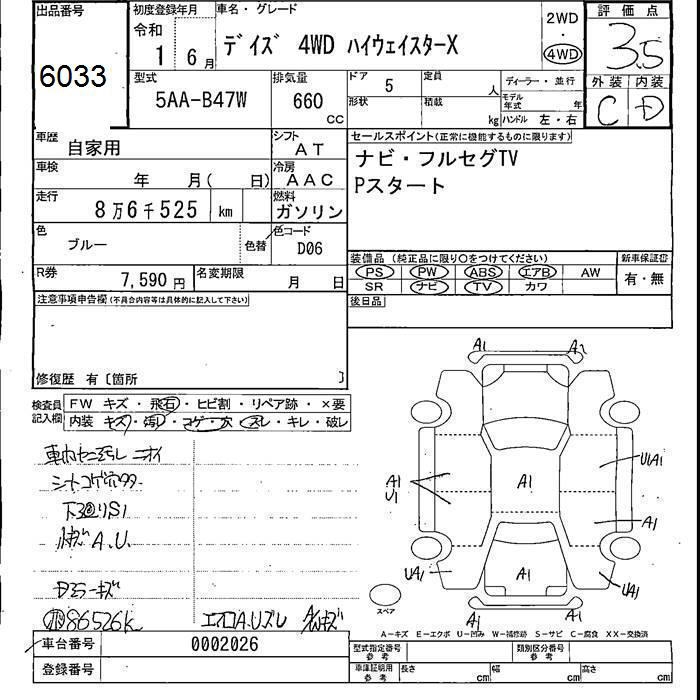 出品番号
6033
初度登録年月
令和
1 6 月
車名・グレード
デイズ 4WD ハイウェイスターX
2WD
・
4WD
評 価 点
3.5
外装 内装
C D
型式
5AA-B47W
排気量
660
CC
ドア
5
定員
人
形状
積載
kg
ディーラー・並行
モデル年式 年
ハンドル 左・右
車歴
自家用
シフト
AT
車検
年 月( 日)
冷房
AAC
走行
8万6千525 km
燃料
ガソリン
色
ブルー
色替
色コード
D06
R券
7,590 円
名変期限
月 日
セールスポイント(正常に機能するものに限ります)
ナビ・フルセグTV
Pスタート
装備品 (純正品に限り○をつけてください)
新車保証書
PS PW ABS エアB AW
SR ナビ TV カワ
有・無
後日品
注意事項申告欄(不具合内容等は具体的に記入して下さい)
修復歴 有〔箇所 〕
検査員
記入欄
FW キズ・飛石・ヒビ割・リペア跡・×要
内装 キズ・汚レ・コゲ・穴・スレ・キレ・破レ
車内セニ汚レ ニオイ
シートコゲ穴
A.U.
キズ
86526k
A1
A1
U1
A1
A1
UA1
A1
UA1
A1
UA1
A1
A1
スペア
A-キズ E-エクボ U-凹み W-補修跡 S-サビ C-腐食 XX-交換済
車台番号
0002026
登録番号
型式指定番号
参考
類別区分番号
参考
車庫証明用
参考
長さ cm
幅 cm
高さ cm